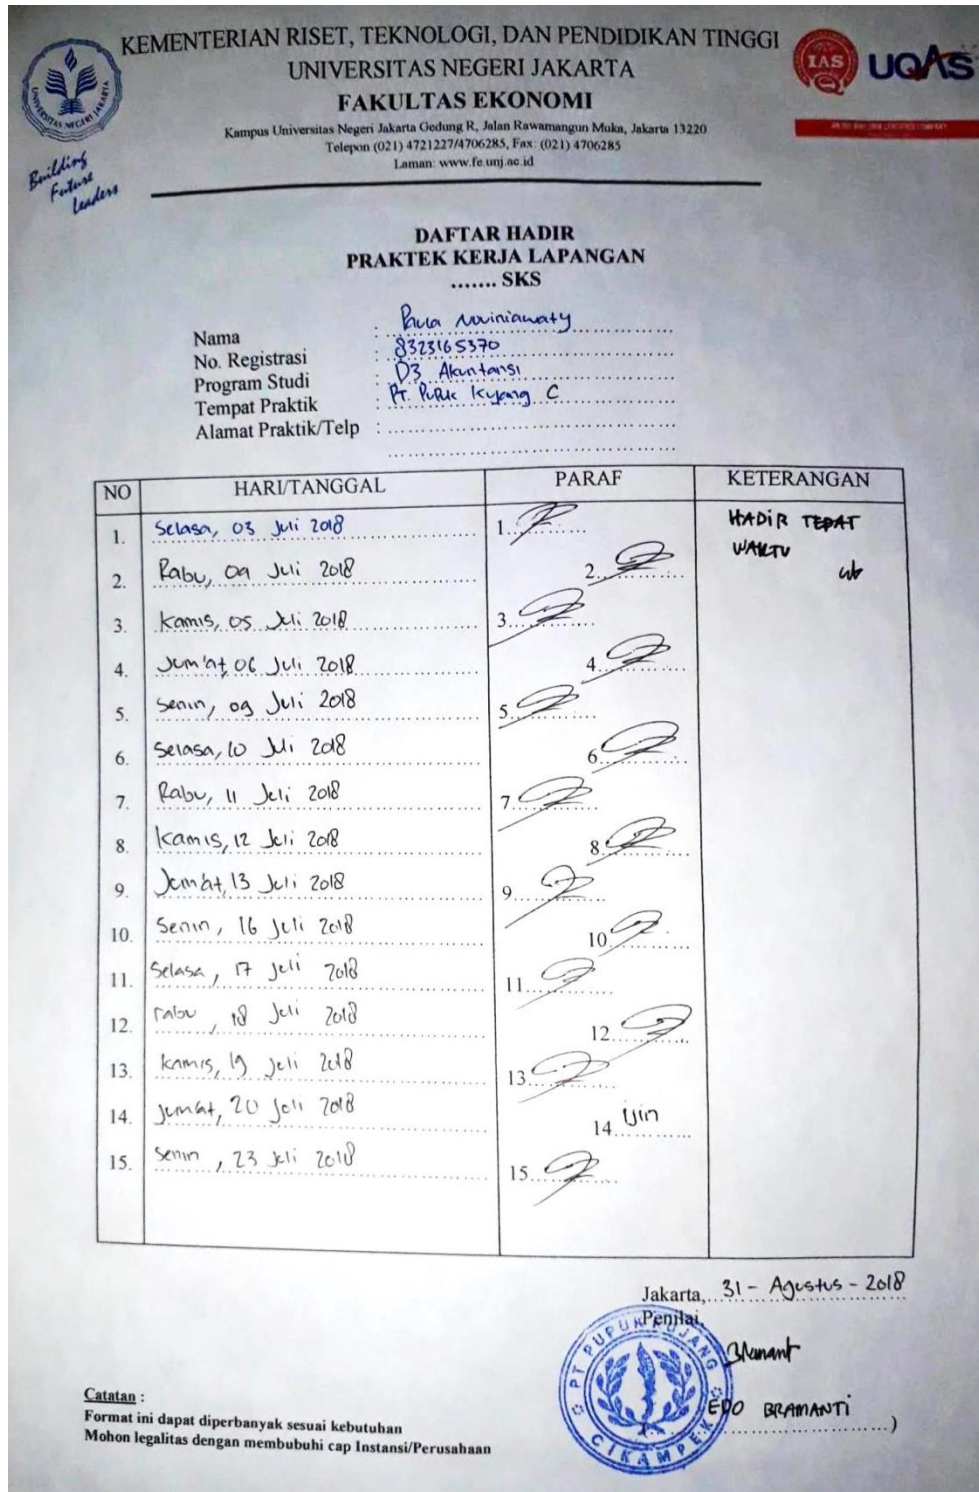 KEMENTERIAN RISET, TEKNOLOGI, DAN PENDIDIKAN TINGGI
UNIVERSITAS NEGERI JAKARTA
FAKULTAS EKONOMI
Kampus Universitas Negeri Jakarta Gedung R, Jalan Rawamangun Muka, Jakarta 13220
Telepon (021) 4721227/4706285, Fax: (021) 4706285
Laman: www.fe.unj.ac.id
UNIVERSITAS NEGERI JAKARTA
Building
Future
Leaders
IAS
UQAS
DAFTAR HADIR
PRAKTEK KERJA LAPANGAN
....... SKS
Nama : Paula Noviniawaty
No. Registrasi : 8323165370
Program Studi : D3 Akuntansi
Tempat Praktik : PT. Pupuk Kujang C
Alamat Praktik/Telp :
NO HARI/TANGGAL PARAF KETERANGAN
1. Selasa, 03 Juli 2018 1. HADIR TEPAT
WAKTU
2. Rabu, 04 Juli 2018 2.
3. Kamis, 05 Juli 2018 3.
4. Jum'at, 06 Juli 2018 4.
5. Senin, 09 Juli 2018 5.
6. Selasa, 10 Juli 2018 6.
7. Rabu, 11 Juli 2018 7.
8. Kamis, 12 Juli 2018 8.
9. Jum'at, 13 Juli 2018 9.
10. Senin, 16 Juli 2018 10.
11. Selasa, 17 Juli 2018 11.
12. rabu, 18 Juli 2018 12.
13. Kamis, 19 Juli 2018 13.
14. Jum'at, 20 Juli 2018 14. Ijin
15. Senin, 23 Juli 2018 15.
Jakarta, 31 - Agustus - 2018
Penilai,
PT PUPUK KUJANG
CIKAMPEK
Bramant
EDO BRAMANTI
)
Catatan :
Format ini dapat diperbanyak sesuai kebutuhan
Mohon legalitas dengan membubuhi cap Instansi/Perusahaan